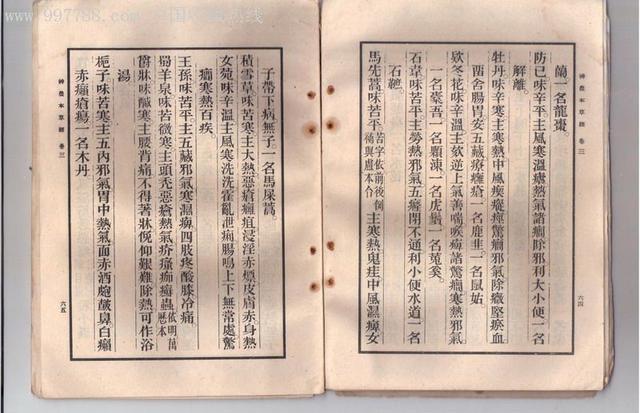 www.997788.com 中国收藏热线
神農本草經 卷三
蘭一名龍棗
防已味辛平主風寒溫瘧熱氣諸癇除邪利大小便一名
解離
牡丹味辛寒主寒熱中風瘈瘲痙驚癇邪氣除癥堅瘀血
留舍腸胃安五臟療癰瘡一名鹿韭一名鼠姑
欵冬花味辛溫主欬逆上氣善喘喉痹諸驚癇寒熱邪氣
一名橐吾一名顆涷一名虎鬚一名菟奚
石韋味苦平主勞熱邪氣五癃閉不通利小便水道一名
石䩾
馬先蒿味苦平苦字依前後例補與盧本合主寒熱鬼疰中風濕痺女
六四
子帶下病無子一名馬屎蒿
積雪草味苦寒主大熱惡瘡癰疽浸淫赤熛皮膚赤身熱
女菀味辛溫主風寒洗洗霍亂泄痢腸鳴上下無常處驚
癇寒熱百疾
王孫味苦平主五臟邪氣寒濕痺四肢疼酸膝冷痛
蜀羊泉味苦微寒主頭禿惡瘡熱氣疥瘙痂癬蟲依明萬歷本
爵牀味鹹寒主腰背痛不得著牀俛仰艱難除熱可作浴
湯
梔子味苦寒主五內邪氣胃中熱氣面赤酒皰皶鼻白癩
赤癩瘡瘍一名木丹
神農本草經 卷三
六五